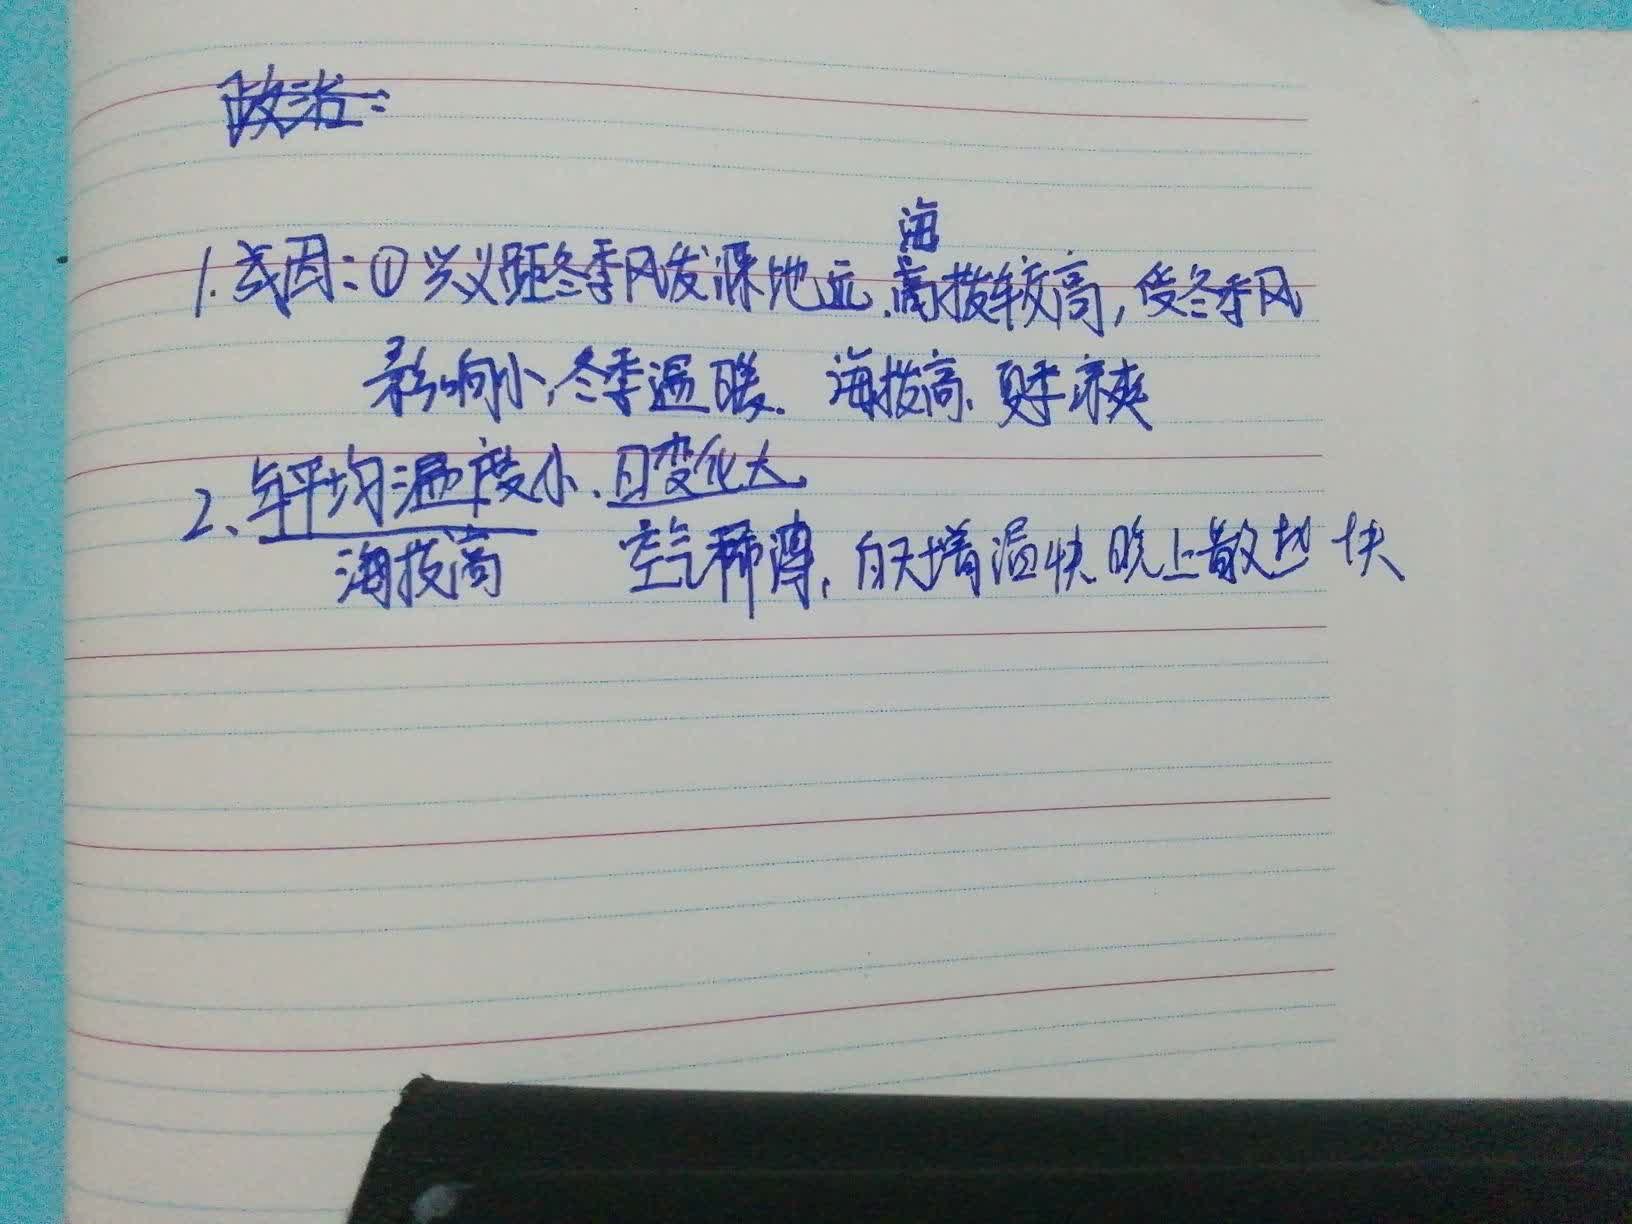 政治:
1.成因:①兴义距冬季风发源地远、海拔较高,受冬季风
影响小,冬季温暖. 海拔高、夏季凉爽
2、年平均温度小、日变化大,
海拔高 空气稀薄,白天增温快 晚上散热快